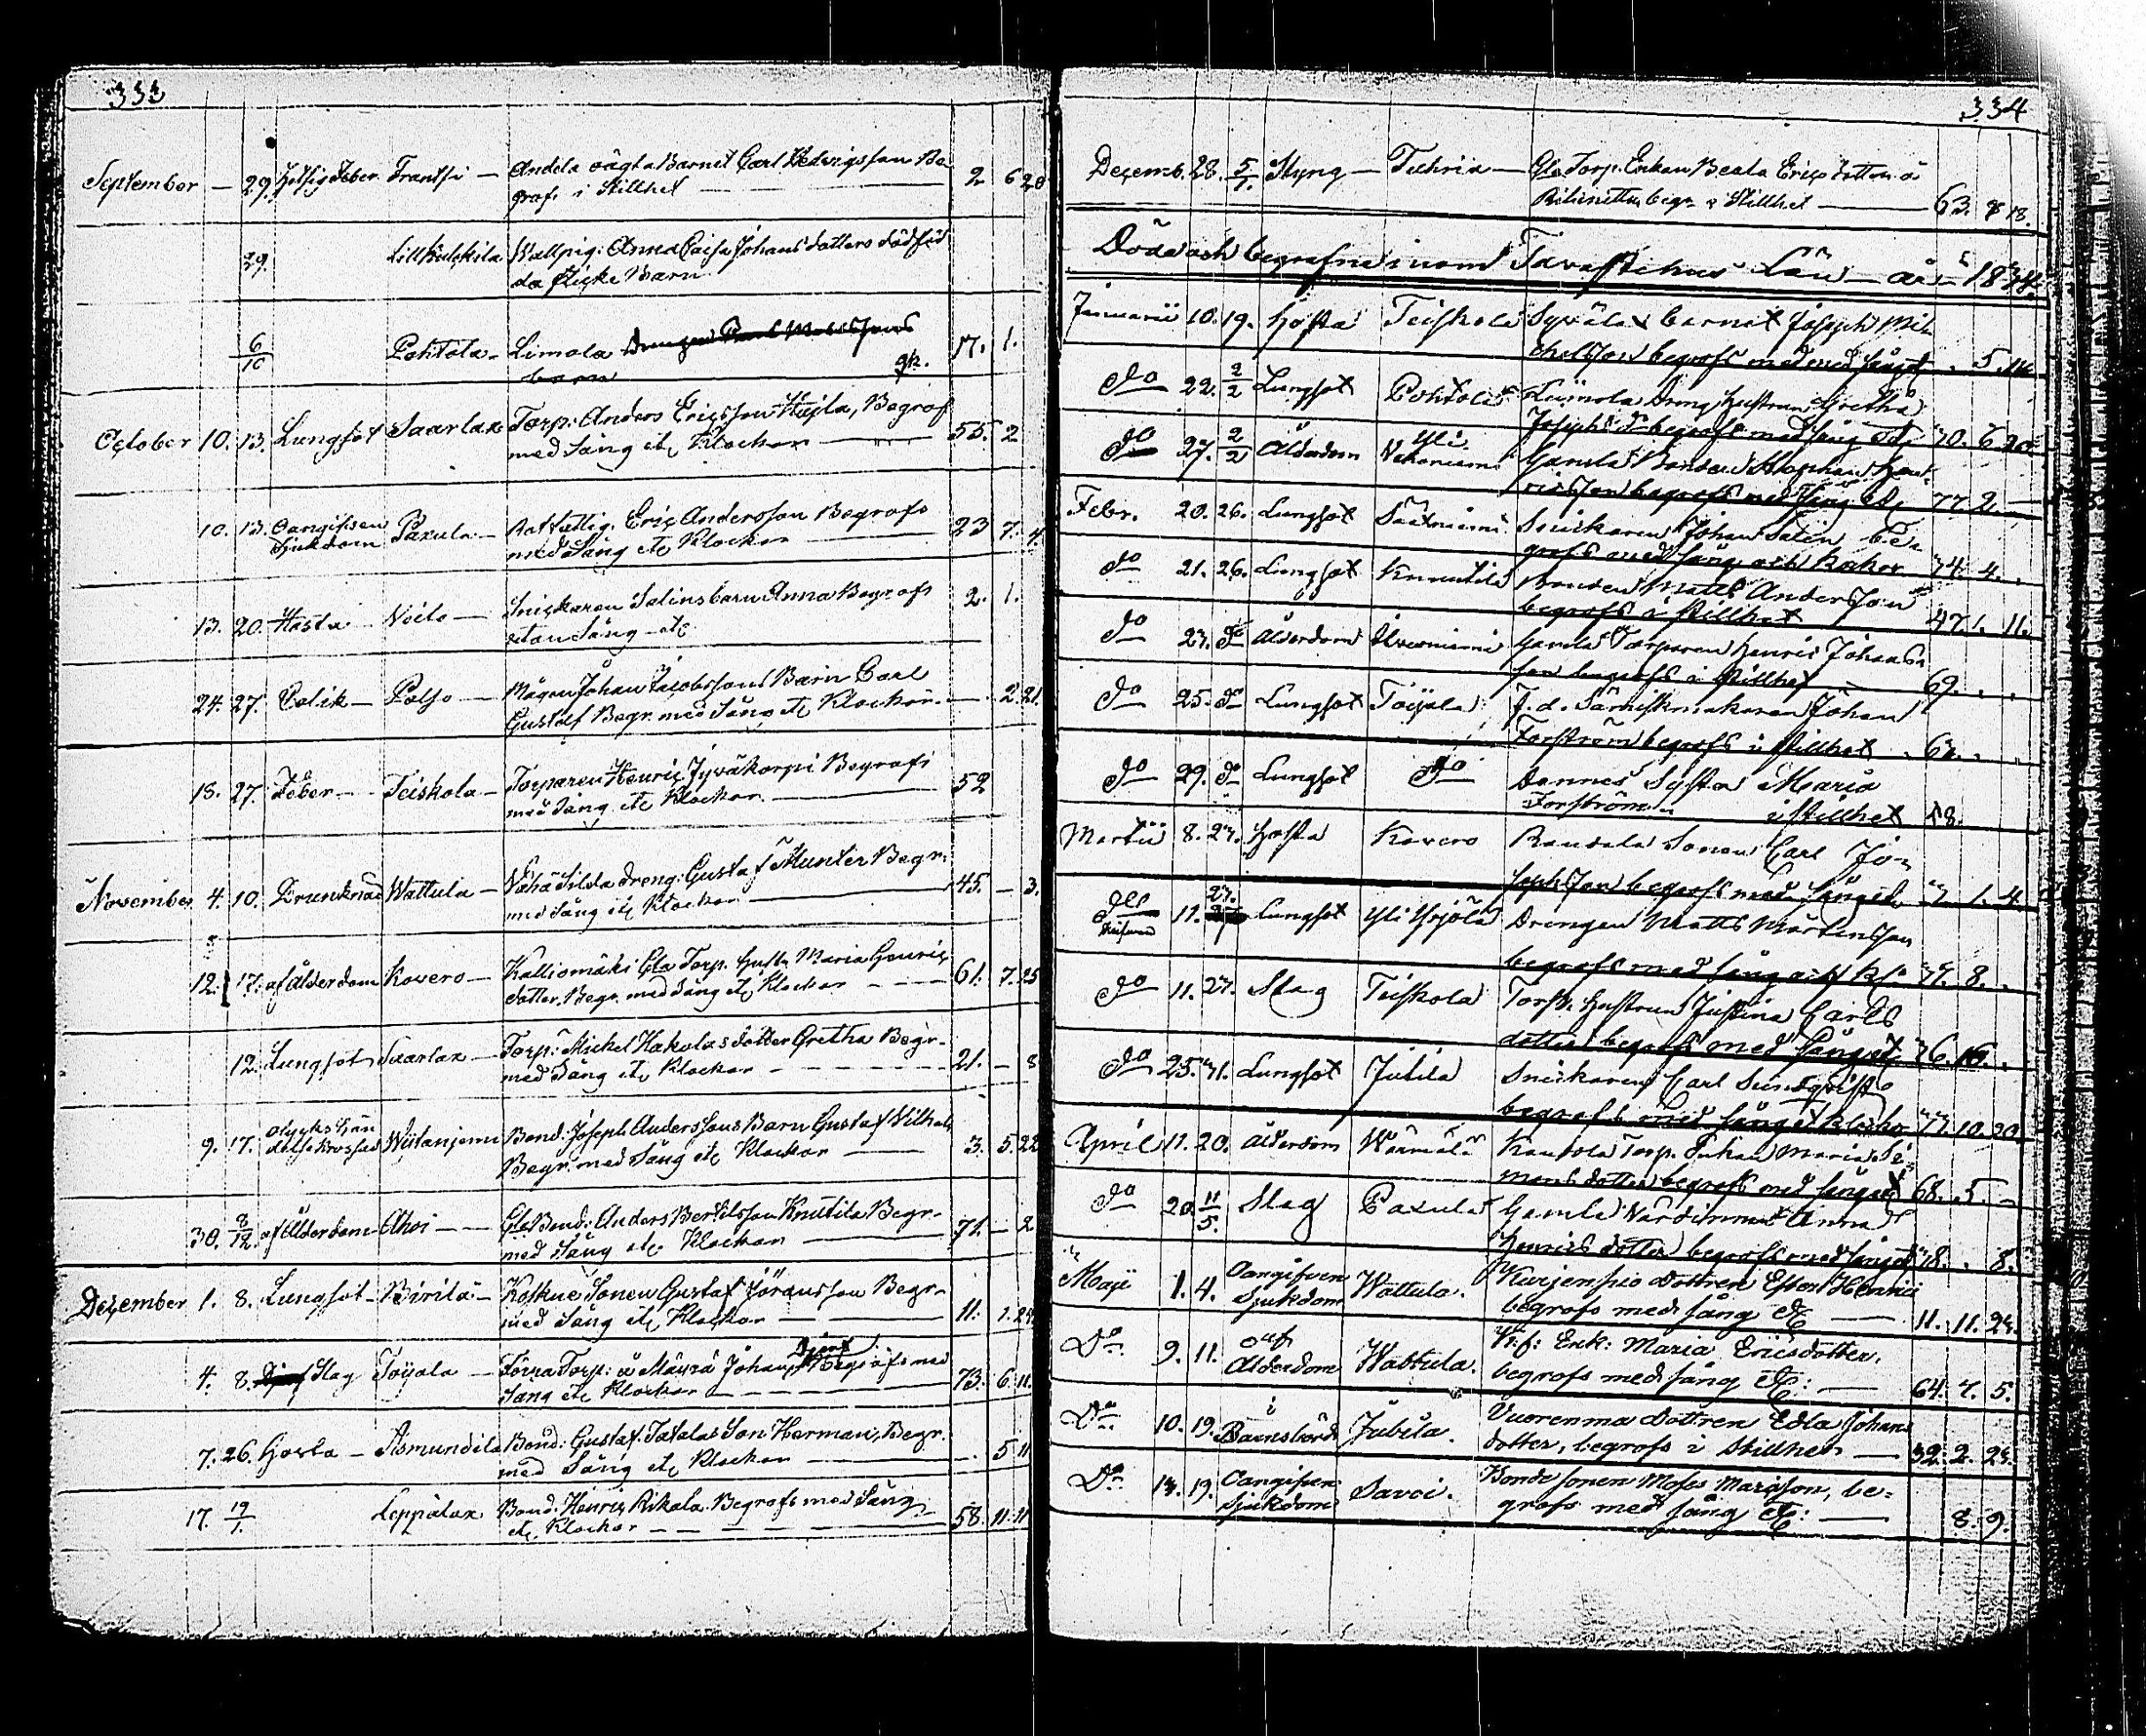 333
September — 29. Hetsig Feber Frantsi — Andela oägta Barnet Carl Hedvigsson Be
grafs i Stillhet — 2 6 28
29. Lill Kulckila Wallpig: Anna Caisa Johansdotters dödföd
da flicke Barn
6/10 Pohtola — Limola Drengen
barn 17. 1.
October 10. 13. Lungsot Saarlax Torp: Anders Ericsson Begrof
med Sång etc Klockor — 55. 2
10. 13. Oangifven
Sjukdom Paxula — Rotfattig. Eric Andersson Begrofs
med Sång etc Klockor — 23 7. 4.
13. 20. Hosta — Noito — Snickaren Salins barn Anna Begrofs
utan Sång etc 2. 1.
24. 27. Colik — Polso — Mågen Johan Jacobssons Barn Carl
Gustaf Begr. med Sång etc Klockor. — 2. 21.
18. 27. Feber — Teiskola — Torparen Henric Jyväkorpi Begrofs
med Sång etc Klockor — 52
November 4. 10. Drunknad Wattula — Vähä Silda dreng: Gustaf Munter Begr:
med Sång etc Klockor — 45. — 3.
12. 17. af Ålderdom Kovero — Kalliomäki Gla Torp. Hustr. Maria Henrics
dotter. Begr. med Sång etc Klockor — 61. 7. 25
12. Lungsot Saarlax — Torp: Michel Hakolas dotter Gretha Begr.
med Sång etc Klockor — 21. — 8
9. 17. Olyckshän
delse Krossad Bond. Joseph Anderssons Barn Gustaf Wilhelm
Begr. med Sång etc Klockor — 3. 5. 22
30. 8/12. af Ålderdom Ahoi — Gla Bond: Anders Bertilsson Knutila Begr.
med Sång etc Klockor — 71. — 2
December 1. 8. Lungsot — Birila — Koskue Sonen Gustaf Göransson Begr.
med Sång etc Klockor — 11. 1. 24
4. 8. Slag Toijala — Förra Torp: å Mäyrä Johan Begrofs med
Sång etc Klockor — 73. 6. 11.
7. 26. Hosta — Asmundila Bond: Gustaf Son Herman, Begr.
med Sång etc Klockor — 5 11
17. 19/1. Leppälax Bond: Henric Rikala. Begrofs med Sång
etc Klockor — 58. 11. 11
334
Decemb. 28. 5/1. Styng — Tuhria — Gla Torp. Enkan Beata Ericsdotter å
begr. i Stillhet — 63. 8 18.
Döda och begrafne inom Tavastehus Län — år 1834.
Januarii 10. 19. Hosta Teiskola barnet Joseph Mi
chelsson begrofs med sång . 5. 14
Do 22. 2/2 Lungsot Pohtola Liimola Dreng hustrun Gretha
Josephs dr begrofs med sång etc 70. 6. 20
Do 27. 2/2 Ålderdom Yli
Gamla Bonden Staphan Hen
ricsson begrofs med sång etc 77 2. —
Febr. 20. 26. Lungsot Säkniemi Snickaren Johan Salin be
grofs med sång och klockor 74. 4. .
do 21. 26. Lungsot Knuutila Bonden Matts Andersson
begrofs i stillhet 47. 1. 11.
do 23. do Ålderdom Gamla Torparen Henric Johans
son begrofs i stillhet 69. . .
do 25. do Lungsot Toijala f. d. Johan
Forström begrofs i stillhet . 62. . .
do 29. do Lungsot do Dennes Syster Maria
Forström i stillhet 58.
Martii 8. 27. Hosta Kovero Randala Sonen Carl Jo-
sephsson begrofs med sång etc 7. 1. 4.
17. 27. Lungsot Yli Yrjölä Drengen Matts Mårtensson
begrofs med sång och kl. 39. 8. .
do 11. 27. Slag Teiskola Torp. Hustrun Justina Carls
dotter begrofs med sång etc 76. 16. .
do 25. 31. Lungsot Jutila Snickaren Carl Sundqvist
begrofs med sång et klockor 77. 10. 20
April 11. 20. Ålderdom Wäärmälä Kautola Torp. Enkan Maria Si
monsdotter begrofs med sång etc 68. 5. —
do 20 11/5. Slag Paxula Gamla Värdinnan Anna
Henricsdotter begrofs med sång etc 78. . 8.
Maji 1. 4. Oangifven
Sjukdom Wattula. Kurjenpio dottren Ester Henrica
begrofs med sång etc — 11. 11. 24.
Do 9. 11. af
Ålderdom Wattula. Erik: Maria Ericsdotter.
begrofs med sång etc: — 64. 7. 5.
Do 10. 19. i
Barnsbörd Jutila. Vuorenma dottren Edla Johans
dotter, begrofs i stillhet — 32. 2. 23.
Do 14. 19. Oangifven
Sjukdom Savoi. Bonde sonen Moses Maxson, be=
grofs med sång etc: — 8. 9.